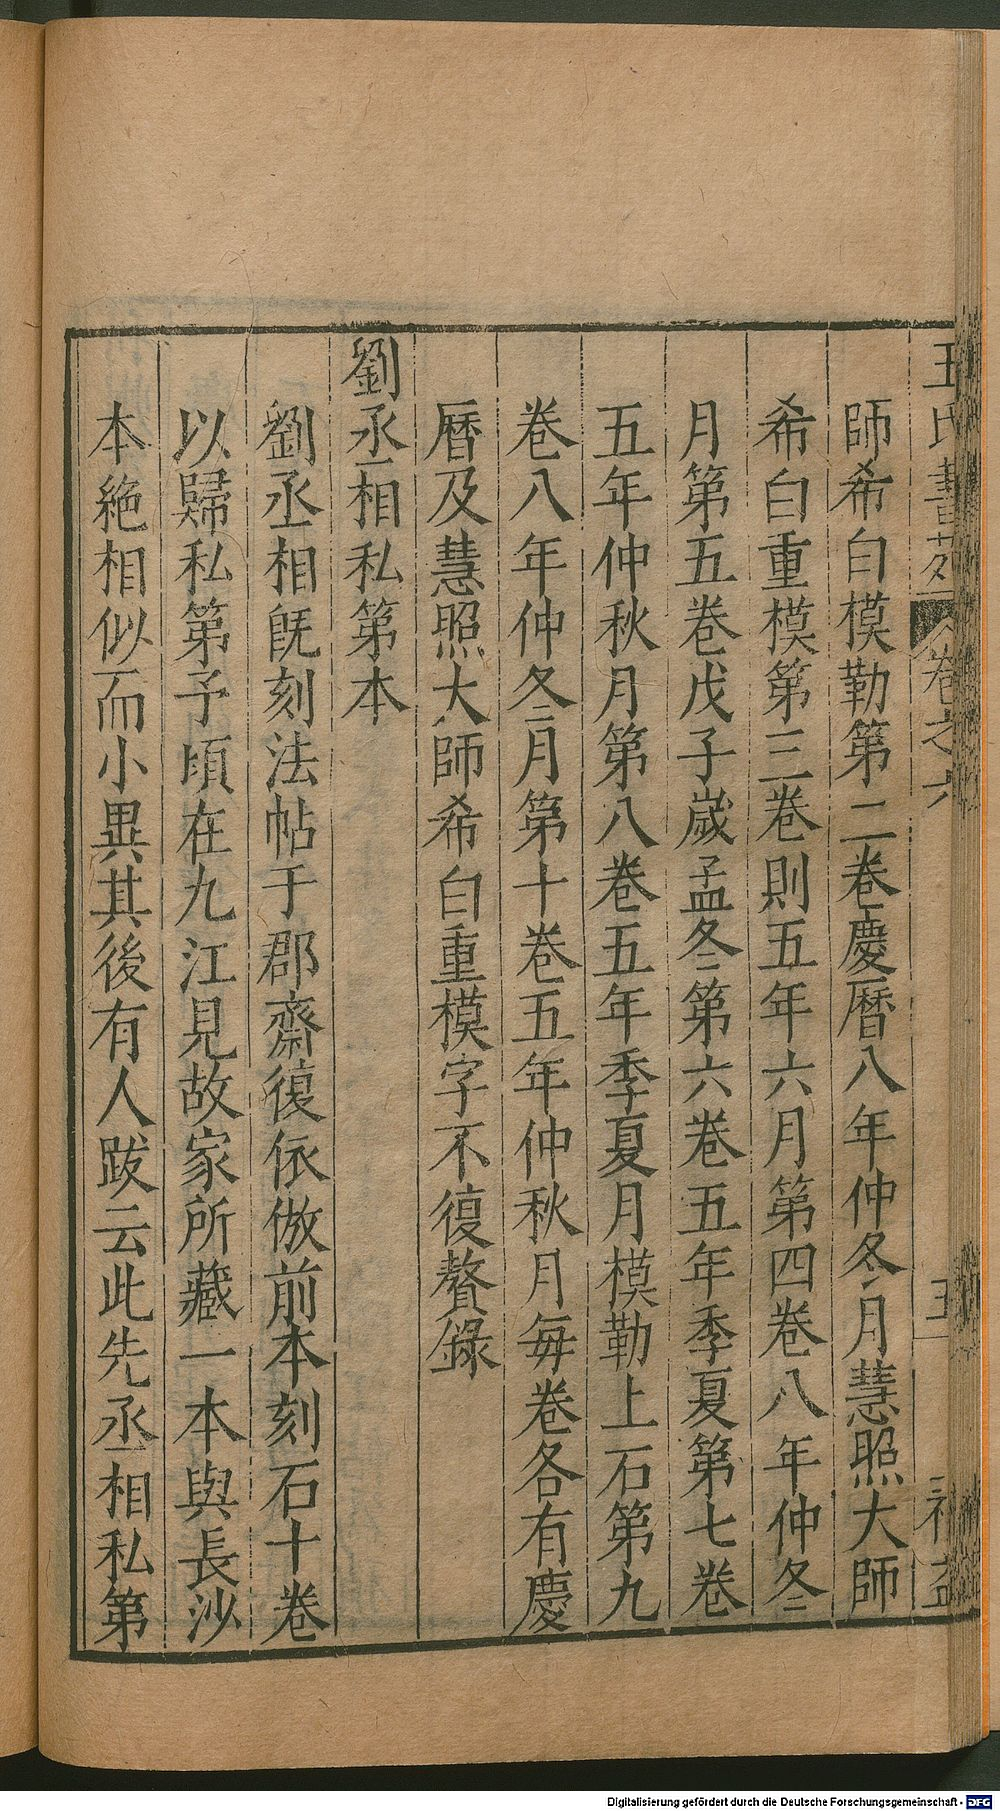 王氏書苑 卷之六 五
師希白模勒第二卷慶曆八年仲冬月慧照大師
希白重模第三卷則五年六月第四卷八年仲冬
月第五卷戊子歲孟冬第六卷五年季夏第七卷
五年仲秋月第八卷五年季夏月模勒上石第九
卷八年仲冬月第十卷五年仲秋月每卷各有慶
曆及慧照大師希白重模字不復贅錄
劉丞相私第本
劉丞相旣刻法帖于郡齋復依倣前本刻石十卷
以歸私第予頃在九江見故家所藏一本與長沙
本絶相似而小異其後有人跋云此先丞相私第
Digitalisierung gefördert durch die Deutsche Forschungsgemeinschaft - DFG